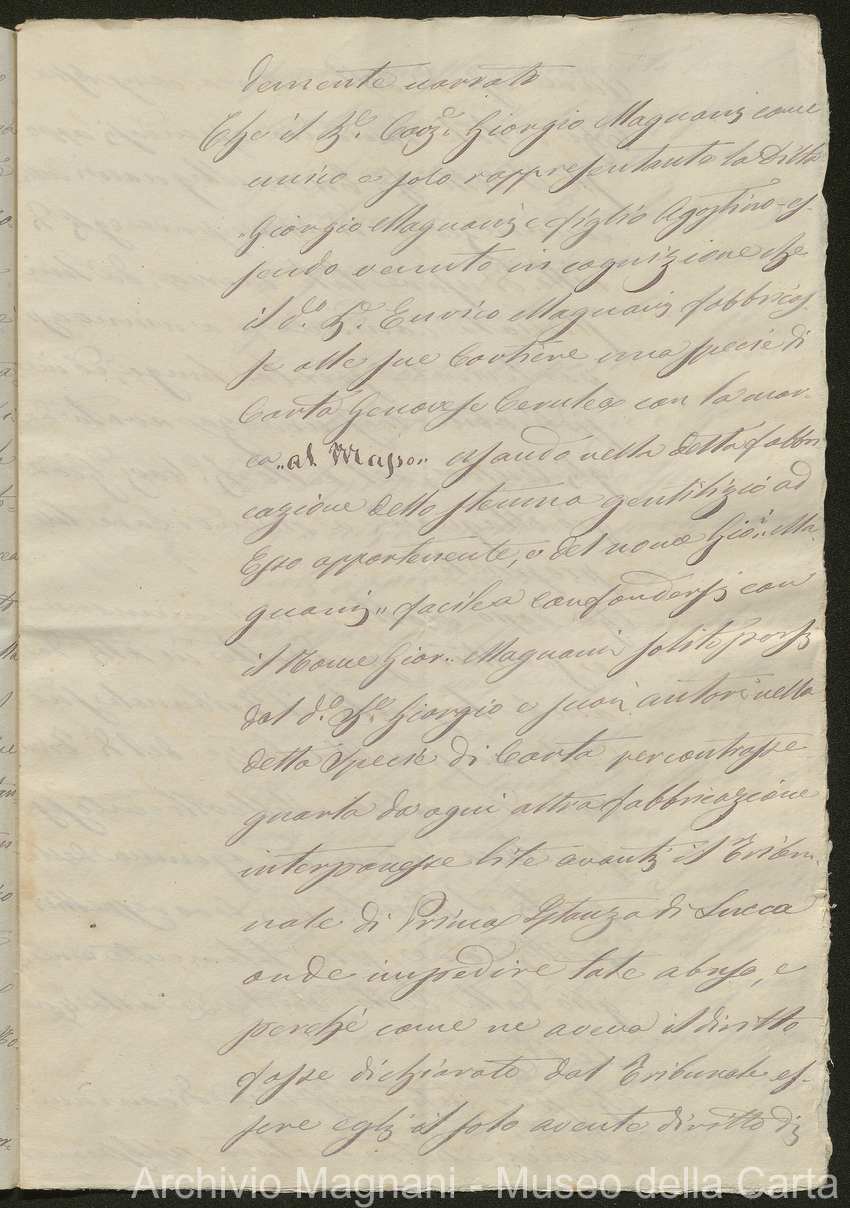 demente narrati
Che il Sr. Cavr. Giorgio Magnani come
unico e solo rappresentante la Ditta
"Giorgio Magnani e figlio Agostino - es-
sendo venuto in cognizione che
il do. Sr. Enrico Magnani fabbricas-
se alle sue Cartiere una specie di
Carta Genovese Cerulea con la mar-
ca "al Maso" usando nella detta fabbri-
cazione dello stemma gentilizio ad
Esso appartenente, e del nome Gior. Ma-
gnani" facile a confondersi con
il Nome Gior. Magnani solito porsi
dal do. Sr. Giorgio e suoi autori nella
detta specie di Carta per contrasse-
gnarla da ogni altra fabbricazione
interponesse lite avanti il Tribu-
nale di Prima Istanza di Lucca
onde impedire tale abuso, e
perché come ne aveva il diritto
fosse dichiarato dal Tribunale es-
sere egli il solo avente diritto di
Archivio Magnani - Museo della Carta